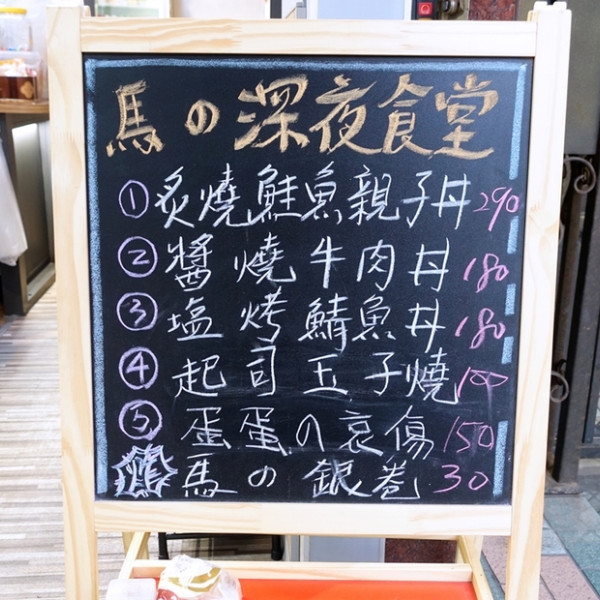 馬の深夜食堂
① 炙燒鮭魚親子丼 290
② 醬燒牛肉丼 180
③ 塩烤鯖魚丼 180
④ 起司玉子燒 100
⑤ 蛋蛋の哀傷 150
馬の銀卷 30